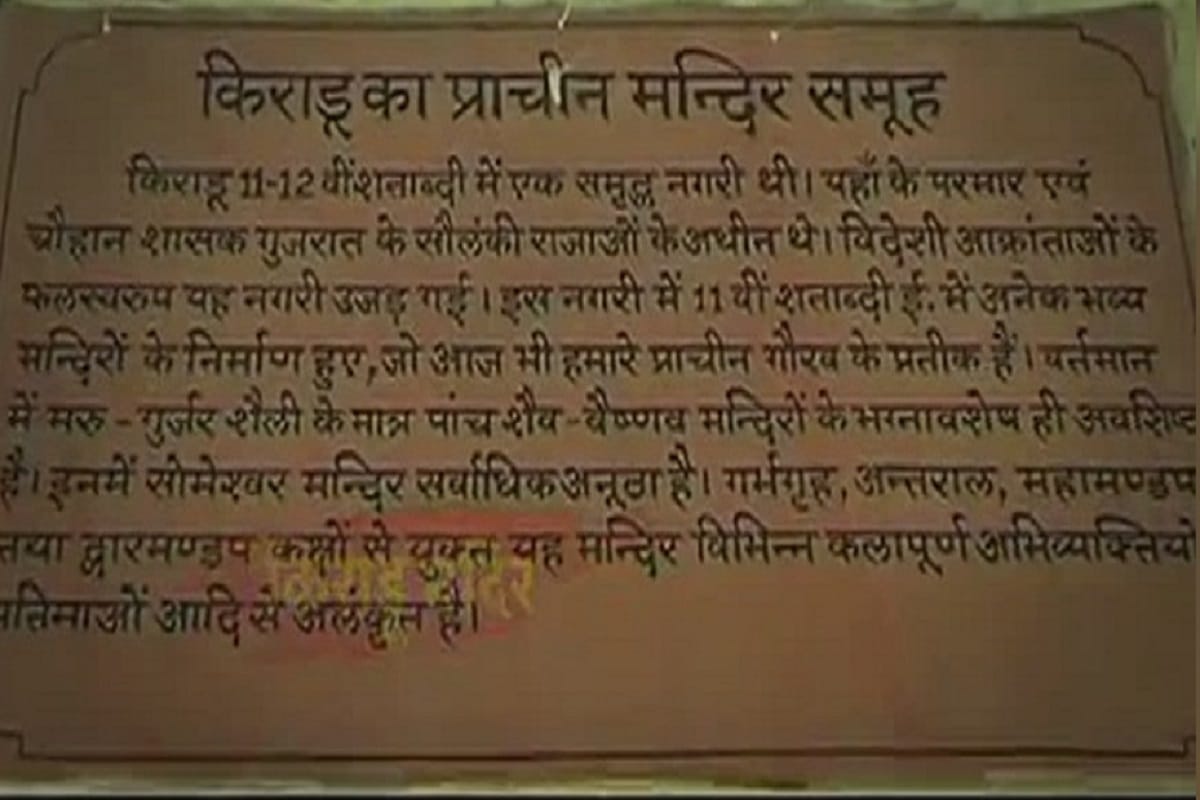 किराडू का प्राचीन मन्दिर समूह
किराडू 11-12 वीं शताब्दी में एक समृद्ध नगरी थी। यहाँ के परमार एवं
चौहान शासक गुजरात के सौलंकी राजाओं के अधीन थे। विदेशी आक्रांताओं के
फलस्वरुप यह नगरी उजड़ गई। इस नगरी में 11 वीं शताब्दी ई. में अनेक भव्य
मन्दिरों के निर्माण हुए, जो आज भी हमारे प्राचीन गौरव के प्रतीक हैं। वर्तमान
में मरु - गुर्जर शैली के मात्र पांच शैव - वैष्णव मन्दिरों के भग्नावशेष ही अवशिष्ट
है। इनमें सोमेश्वर मन्दिर सर्वाधिक अनूठा है। गर्भगृह, अन्तराल, महामण्डप
तथा द्वारमण्डप कक्षों से युक्त यह मन्दिर विभिन्न कलापूर्ण अभिव्यक्तियों
किराडू मंदिर
प्रतिमाओं आदि से अलंकृत है।